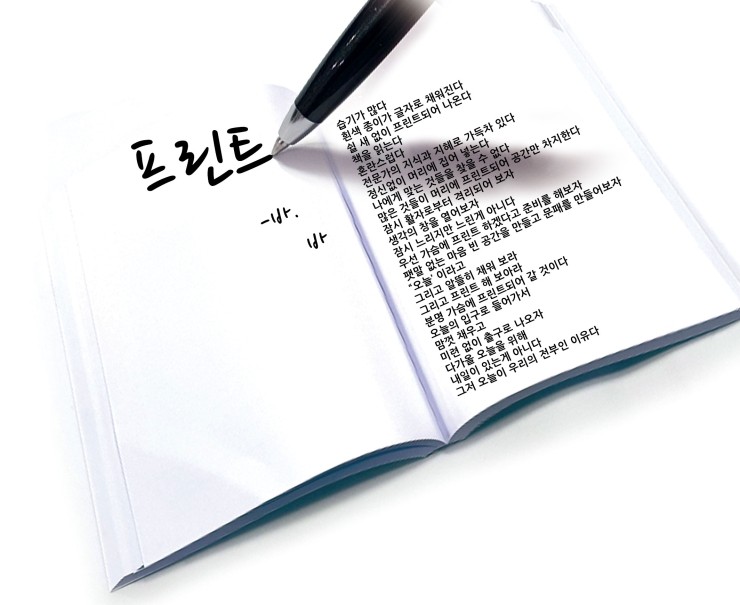 프린트
-바.
바
습기가 많다
흰색 종이가 글자로 채워진다
쉴 새 없이 프린트되어 나온다
책을 읽는다
혼란스럽다
전문가의 지식과 지혜로 가득차 있다
정신없이 머리에 집어 넣는다
나에게 맞는 것들을 찾을 수 없다
많은 것들이 머리에 프린트되어 공간만 차지한다
잠시 활자로부터 격리되어 보자
생각의 창을 열어보자
잠시 느리지만 느린게 아니다
우선 가슴에 프린트 하겠다고 준비를 해보자
팻말 없는 마음 빈 공간을 만들고 문패를 만들어보자
"오늘' 이라고
그리고 알뜰히 채워 보라
그리고 프린트 해 보아라
분명 가슴에 프린트되어 갈 것이다
오늘의 입구로 들어가서
맘껏 채우고
미련 없이 출구로 나오자
다가올 오늘을 위해
내일이 있는게 아니다
그저 오늘이 우리의 전부인 이유다